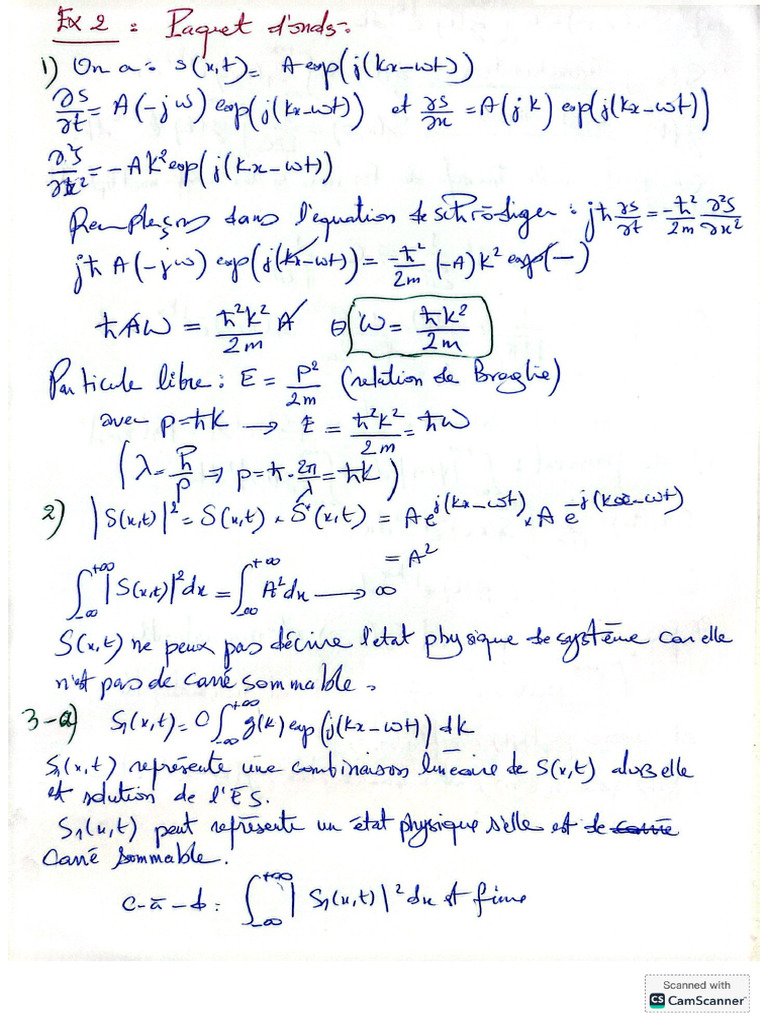 Ex 2 : Paquet d'onds :
1) On a : s(x,t) = A exp(j(kx-ωt))
∂s/∂t = A(-jω) exp(j(kx-ωt)) et ∂s/∂x = A(jk) exp(j(kx-ωt))
∂²s/∂x² = -Ak² exp(j(kx-ωt))
Remplaçons dans l'équation de schrödiger : jħ ∂s/∂t = -ħ²/2m ∂²s/∂x²
jħ A(-jω) exp(j(kx-ωt)) = -ħ²/2m (-A)k² exp(—)
ħAω = ħ²k²/2m A ⊖ ω = ħk²/2m
Particule libre : E = P²/2m (relation de Broglie)
avec p=ħk → E = ħ²k²/2m = ħω
(λ = h/p ⇒ p = ħ·2π/λ = ħk)
2) |S(x,t)|² = S(x,t) × S*(x,t) = A e^{j(kx-ωt)} × A e^{-j(kx-ωt)}
= A²
∫_{-∞}^{+∞} |S(x,t)|² dx = ∫_{-∞}^{+∞} A² dx → ∞
S(x,t) ne peux pas décrire l'état physique de système car elle
n'est pas de carré sommable.
3-a) S₁(x,t) = C ∫_{-∞}^{+∞} g(k) exp(j(kx-ωt)) dk
S₁(x,t) représente une combinaison linéaire de S(x,t) alors elle
est solution de l'ES.
S₁(x,t) peut représente un état physique s'elle est de
carré sommable.
c-à-d : ∫_{-∞}^{+∞} |S₁(x,t)|² dx est finie
Scanned with
CS CamScanner